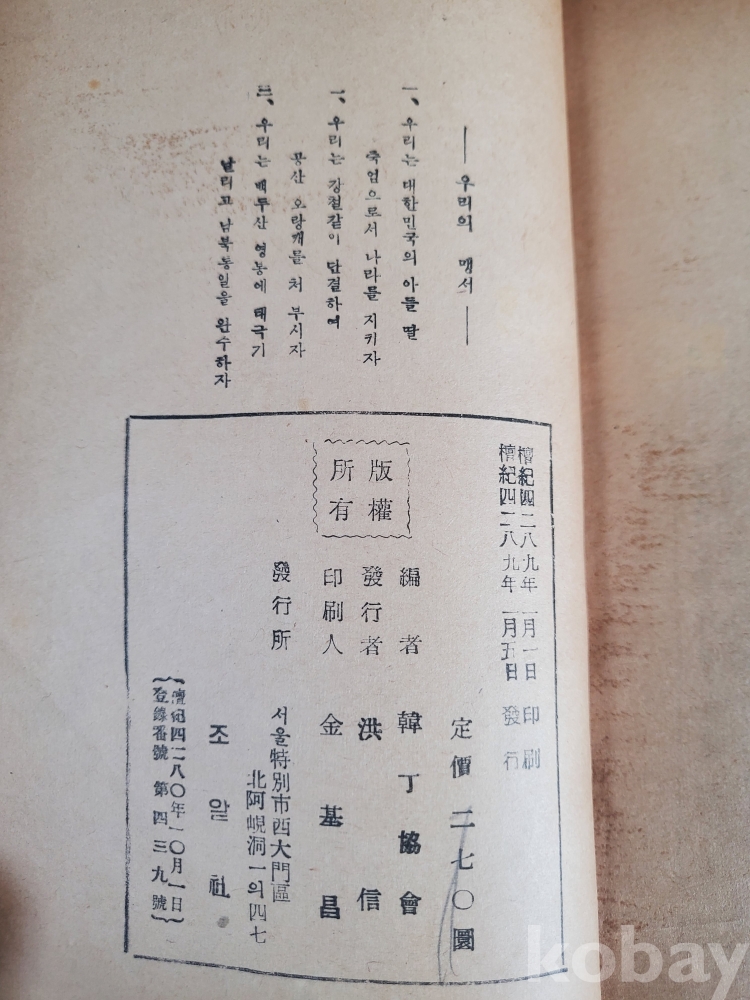 ── 우리의 맹서 ──
一、우리는 대한민국의 아들 딸
죽엄으로서 나라를 지키자
一、우리는 강철같이 단결하여
공산 오랑캐를 처 부시자
三、우리는 백두산 영봉에 태극기
날리고 남북통일을 완수하자
檀紀四二八九年 一月一日 印刷
檀紀四二八九年 一月五日 發行
定價 二七〇圜
版權
所有
編者 韓丁協會
發行者 洪信
印刷人 金基昌
發行所 서울特別市西大門區
北阿峴洞一의四七
조알社
(檀紀四二八〇年一〇月一日
登錄番號 第四三九號)
kobay